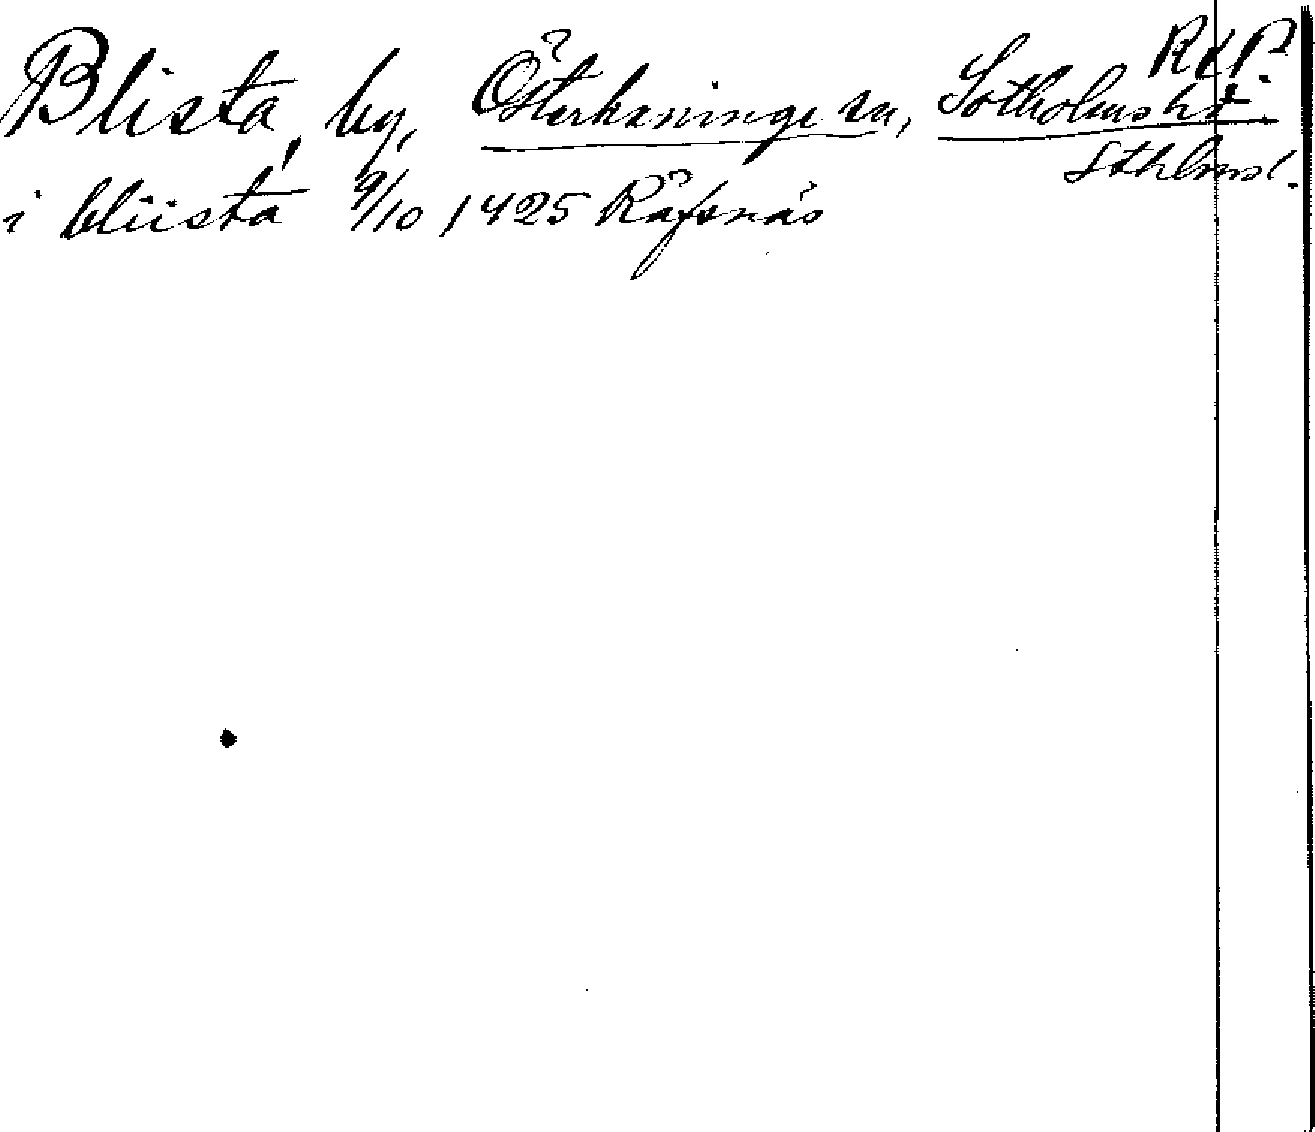 RAP.
Blista, by, Österhaninge sn, Sotholms hd.
Sthlms l.
i bliista 9/10 1425 Räfsnäs